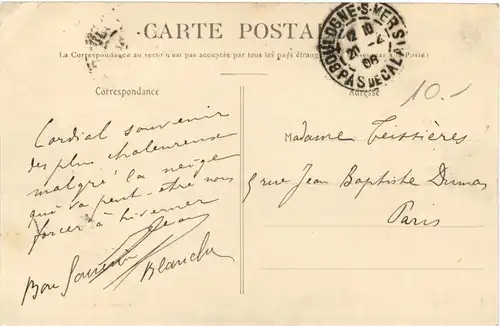 CARTE POSTALE
(La Correspondance au recto n'est pas acceptée par tous les pays étrangers Postes)
BOULOGNE-S-MER
12 10
20 -4
06
PAS DE CALAIS
Correspondance
Adresse
10.-
Cordial souvenir
des plus chaleureux
malgré la neige
qui va peut-être nous
forcer à hiverner
Jean
Bon Souvenir
Blanche
Madame Teissières
5 rue Jean Baptiste Dumas
Paris